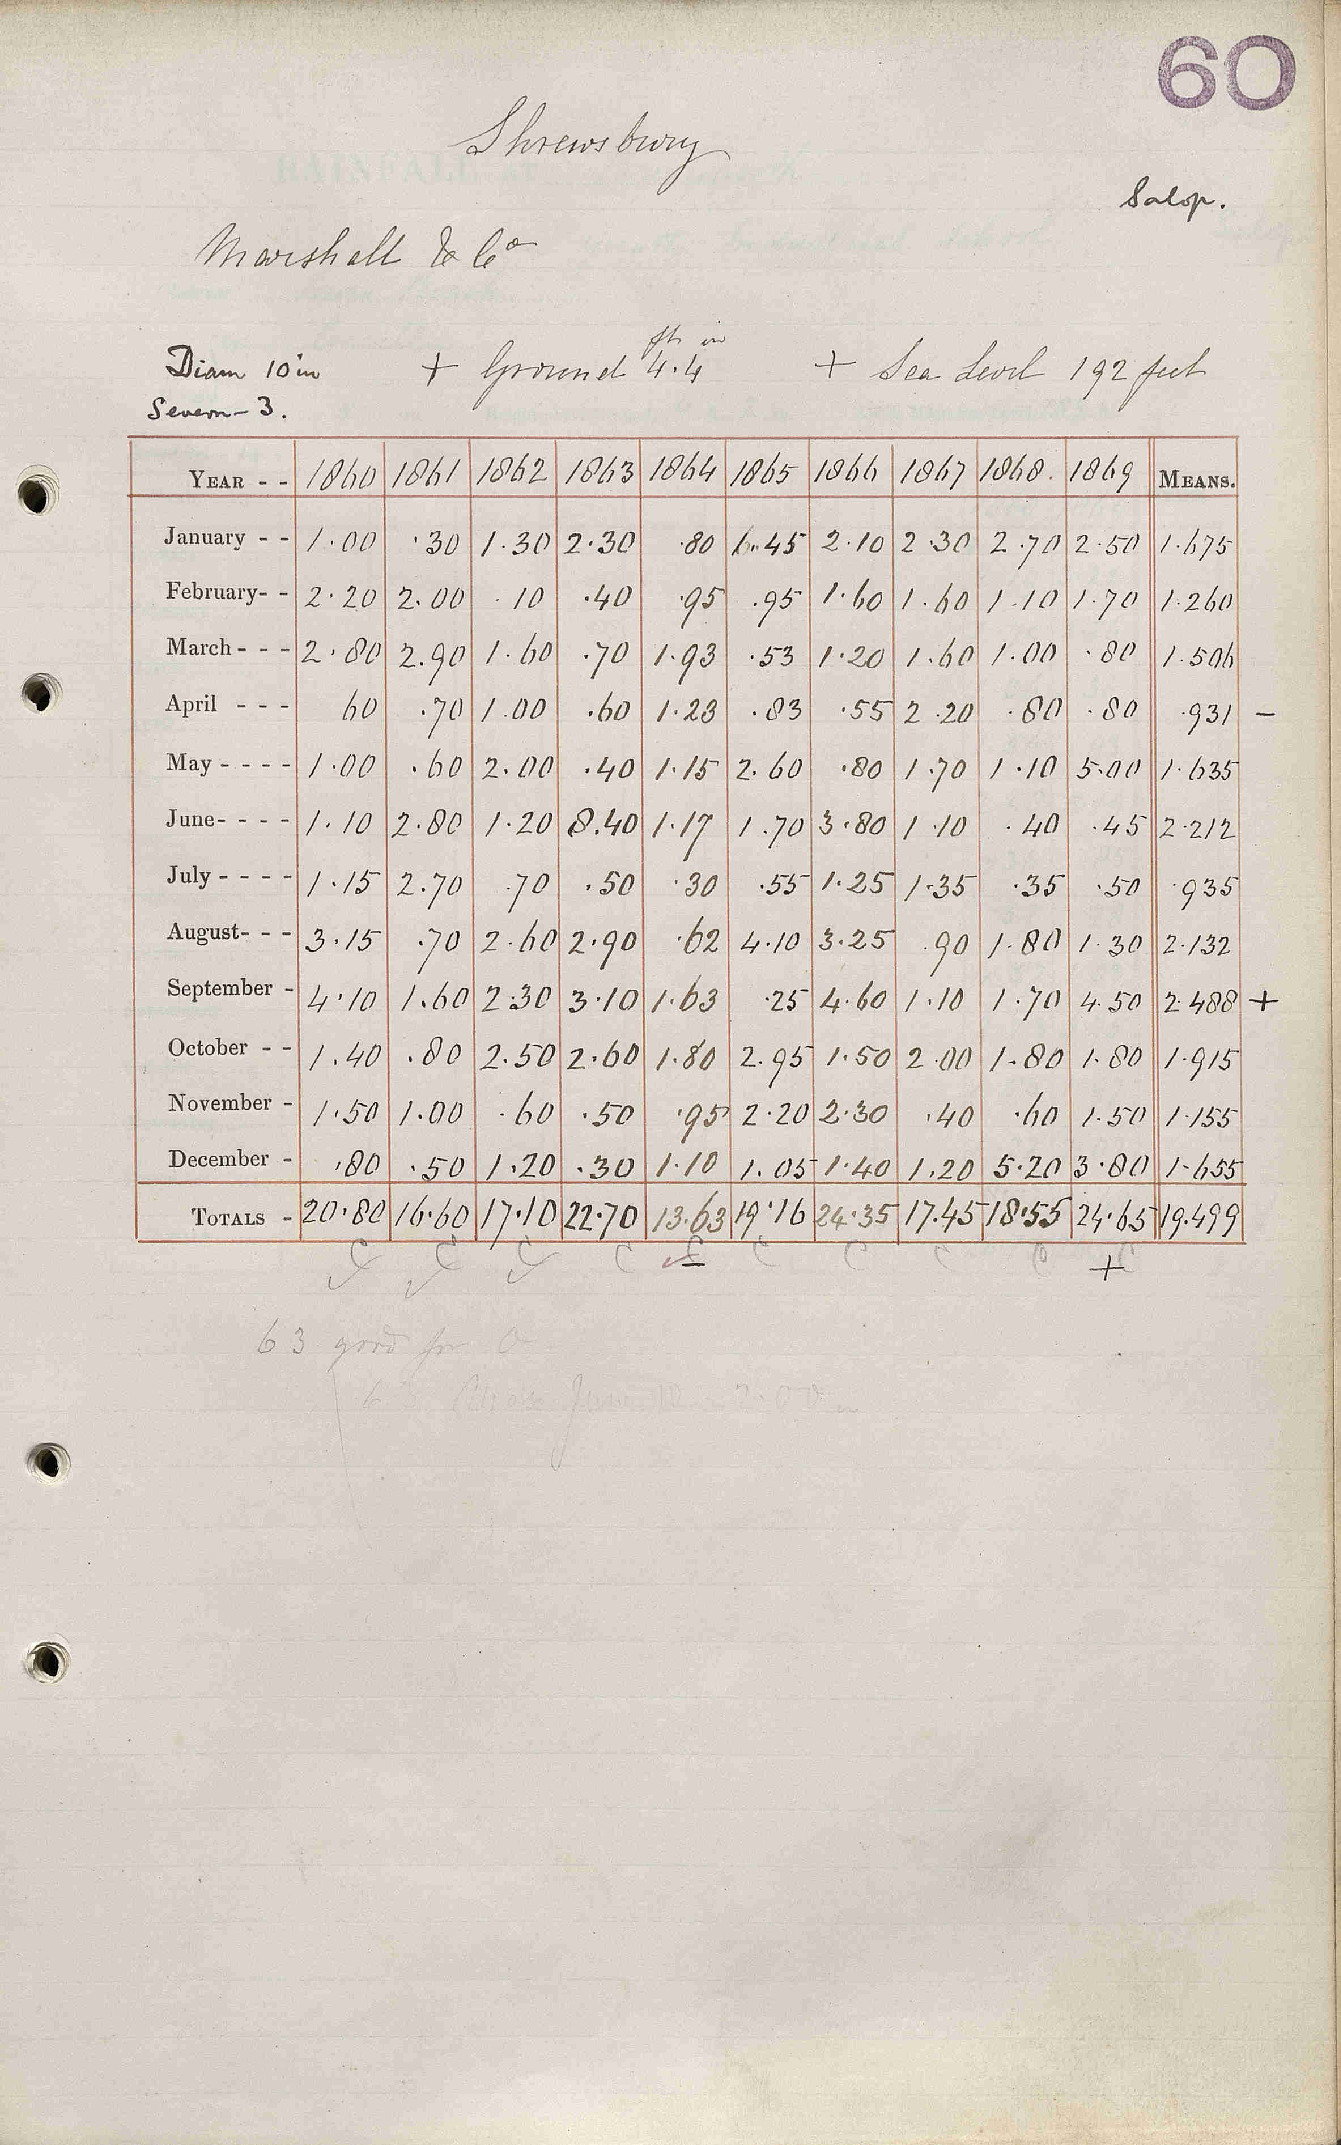 60
Shrewsbury
Salop.
Marshall & Co
ft in
Diam 10 in + Ground 4.4 + Sea Level 192 feet
Severn - 3.
YEAR - - 1860 1861 1862 1863 1864 1865 1866 1867 1868. 1869 MEANS.
January - - 1.00 .30 1.30 2.30 .80 1.45 2.10 2.30 2.70 2.50 1.675
February- - 2.20 2.00 .10 .40 .95 .95 1.60 1.60 1.10 1.70 1.260
March - - - 2.80 2.90 1.60 .70 1.93 .53 1.20 1.60 1.00 .80 1.506
April - - - 60 .70 1.00 .60 1.23 .83 .55 2.20 .80 .80 .931 –
May - - - - 1.00 .60 2.00 .40 1.15 2.60 .80 1.70 1.10 5.00 1.635
June- - - - 1.10 2.80 1.20 8.40 1.17 1.70 3.80 1.10 .40 .45 2.212
July - - - - 1.15 2.70 .70 .50 .30 .55 1.25 1.35 .35 .50 .935
August- - - 3.15 .70 2.60 2.90 .62 4.10 3.25 .90 1.80 1.30 2.132
September - 4.10 1.60 2.30 3.10 1.63 .25 4.60 1.10 1.70 4.50 2.488 +
October - - 1.40 .80 2.50 2.60 1.80 2.95 1.50 2.00 1.80 1.80 1.915
November - 1.50 1.00 .60 .50 .95 2.20 2.30 .40 .60 1.50 1.155
December - .80 .50 1.20 .30 1.10 1.05 1.40 1.20 5.20 3.80 1.655
TOTALS - 20.80 16.60 17.10 22.70 13.63 19.16 24.35 17.45 18.55 24.65 19.499
C C C C C C C C C C
– +
63 good for
63 June